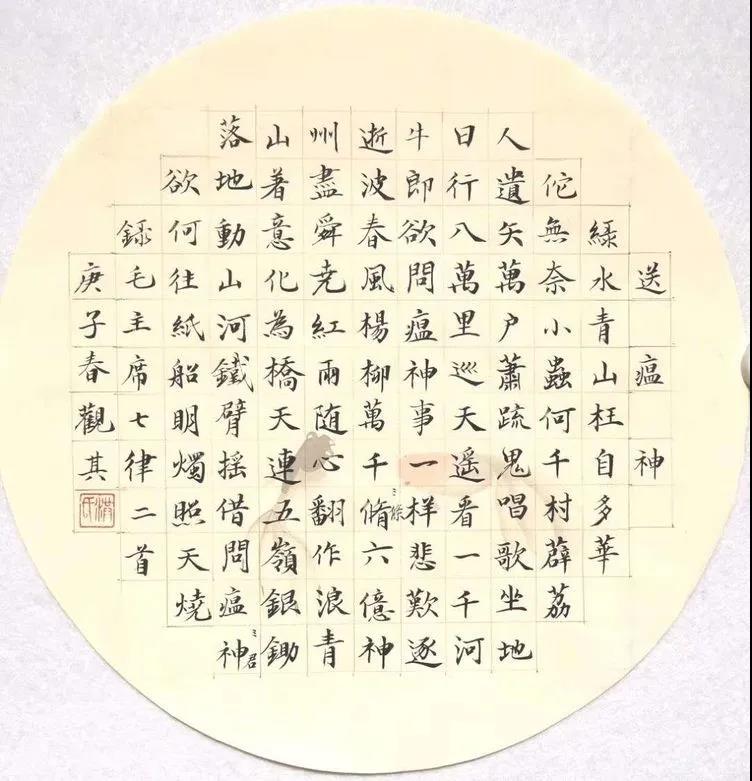 送瘟神
緑水青山枉自多華
佗無奈小蟲何千村薜荔
人遺矢萬户蕭疏鬼唱歌坐地
日行八萬里巡天遥看一千河
牛即欲問瘟神事一样悲歎逐
逝波春風楊柳萬千脩ミ條六億神
州盡舜尭紅雨随心翻作浪青
山着意化為橋天連五嶺銀鋤
落地動山河鐵臂摇借問瘟神ミ君
欲何往紙船明燭照天燒
録毛主席七律二首
庚子春觀其